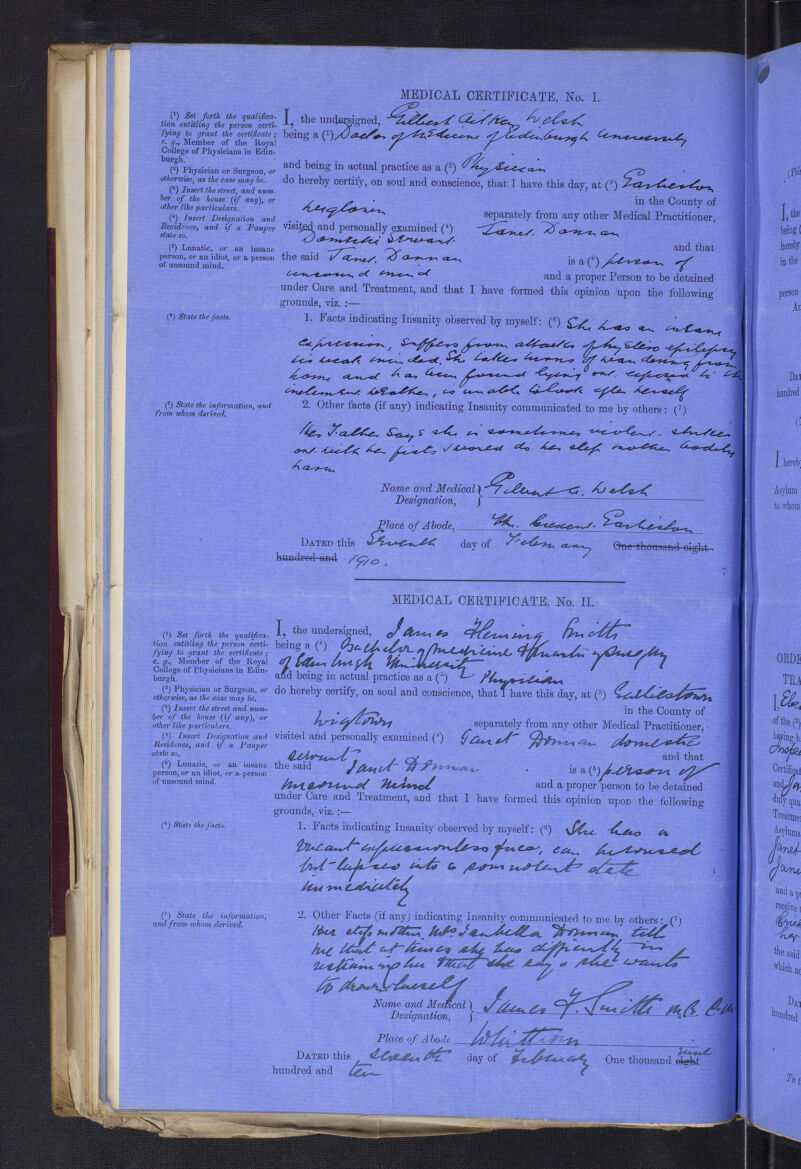 MEDICAL CERTIFICATE, No. I.
(¹) Set forth the qualifica-
tion entitling the person certi-
fying to grant the certificate;
e. g., Member of the Royal
College of Physicians in Edin-
burgh.
(²) Physician or Surgeon, or
otherwise, as the case may be.
(³) Insert the street, and num-
ber of the house (if any), or
other like particulars.
(⁴) Insert Designation and
Residence, and if a Pauper
state so.
(⁵) Lunatic, or an insane
person, or an idiot, or a person
of unsound mind.
(⁶) State the facts.
(⁷) State the information, and
from whom derived.
I, the undersigned, Gilbert Aitken Welsh
being a (¹) Doctor of Medicine of Edinburgh University
and being in actual practice as a (²) Physician
do hereby certify, on soul and conscience, that I have this day, at (³) Garlieston
in the County of
separately from any other Medical Practitioner,
visited and personally examined (⁴) Janet Donnan
Domestic Servant and that
the said Janet Donnan is a (⁵) person of
unsound mind and a proper Person to be detained
under Care and Treatment, and that I have formed this opinion upon the following
grounds, viz. :—
1. Facts indicating Insanity observed by myself: (⁶) She has an insane
expression, suffers from attacks of hystero epilepsy
is weak minded. She takes turns of wandering from
home and has been found lying out exposed to the
inclement weather, is unable to look after herself
2. Other facts (if any) indicating Insanity communicated to me by others: (⁷)
Her Father says she is sometimes violent. strikes
out with her fists & would do her step mother bodily
harm
Name and Medical Designation, Gilbert A. Welsh
Place of Abode, The Crescent. Garlieston
DATED this Seventh day of February One thousand eight
hundred and 1910.
MEDICAL CERTIFICATE, No. II.
(¹) Set forth the qualifica-
tion entitling the person certi-
fying to grant the certificate;
e. g., Member of the Royal
College of Physicians in Edin-
burgh.
(²) Physician or Surgeon, or
otherwise, as the case may be.
(³) Insert the street and num-
ber of the house (if any), or
other like particulars.
(⁴) Insert Designation and
Residence, and if a Pauper
state so.
(⁵) Lunatic, or an insane
person, or an idiot, or a person
of unsound mind.
(⁶) State the facts.
(⁷) State the information,
and from whom derived.
I, the undersigned, James Fleming Smith
being a (¹) Bachelor of medicine & master of surgery
of Edinburgh University
and being in actual practice as a (²) Physician
do hereby certify, on soul and conscience, that I have this day, at (³) Garliestown
in the County of
Wigtown separately from any other Medical Practitioner,
visited and personally examined (⁴) Janet Donnan domestic
servant and that
the said Janet Donnan is a (⁵) person of
unsound mind and a proper person to be detained
under Care and Treatment, and that I have formed this opinion upon the following
grounds, viz. :—
1. Facts indicating Insanity observed by myself: (⁶) She has a
vacant expressionless face, can be roused
but lapses into a somnolent state
immediately
2. Other Facts (if any) indicating Insanity communicated to me by others: (⁷)
Her step mother Mrs Isabella Donnan tells
me that at times she has difficulty in
restraining her that she says she wants
to drown herself
Name and Medical Designation, James F. Smith M.B. C.M
Place of Abode Whithorn
DATED this seventh day of February One thousand eight nine
hundred and ten